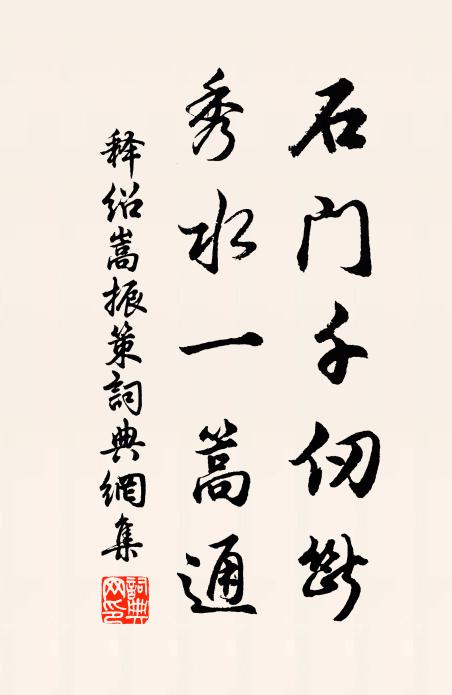 石门千仞断
秀水一篙通
释绍嵩振策詞典網集
詞典网印